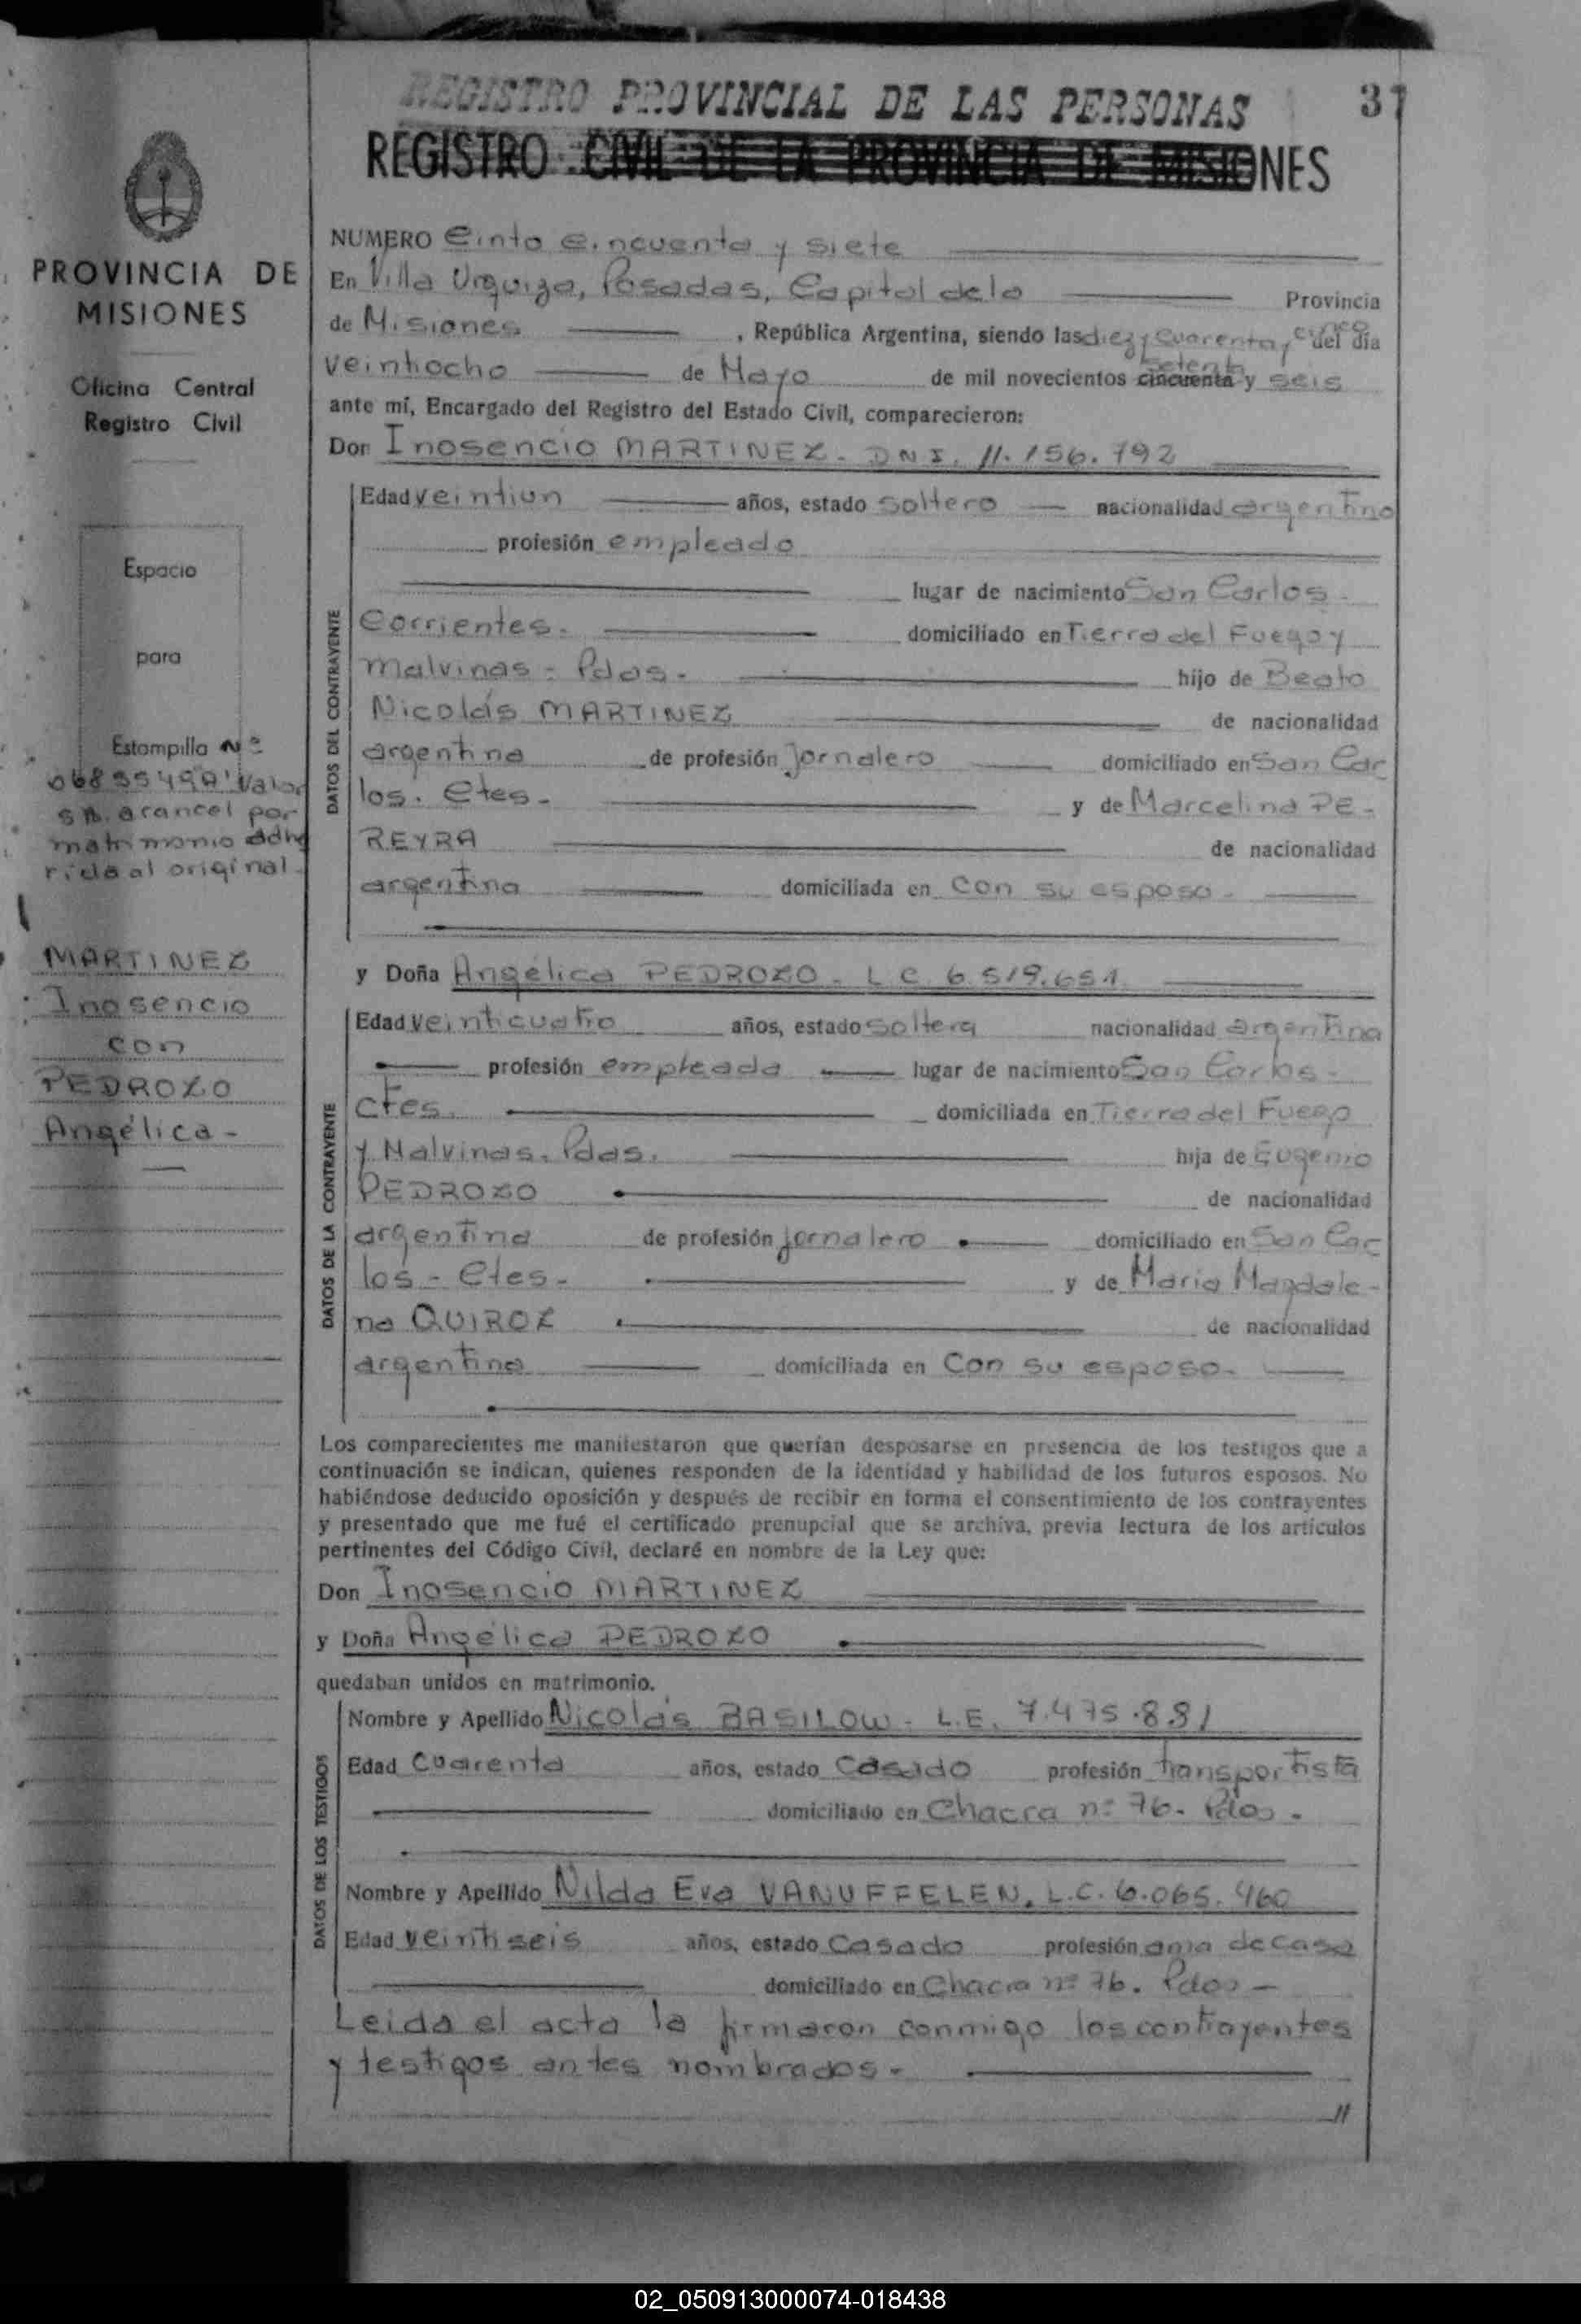 REGISTRO PROVINCIAL DE LAS PERSONAS
37
REGISTRO CIVIL DE LA PROVINCIA DE MISIONES
PROVINCIA DE
MISIONES
Oficina Central
Registro Civil
Espacio
para
Estampilla Nº
valor
$ arancel por
matrimonio adhe
rida al original.
MARTINEZ
Inosencio
con
PEDROZO
Angélica -
NUMERO Cinto Cincuenta y siete
En Villa Urquiza, Posadas, Capital de la Provincia
de Misiones, República Argentina, siendo las diez y Cuarenta y cinco del día
veintiocho de Mayo de mil novecientos cincuenta setenta y seis
ante mí, Encargado del Registro del Estado Civil, comparecieron:
Don Inosencio MARTINEZ - DNI. 11.156.792
DATOS DEL CONTRAYENTE
Edad veintiun años, estado soltero nacionalidad argentino
profesión empleado
lugar de nacimiento San Carlos -
Corrientes. domiciliado en Tierra del Fuego y
Malvinas - Pdas. hijo de Beato
Nicolás MARTINEZ de nacionalidad
argentina de profesión jornalero domiciliado en San Car
los. Ctes. y de Marcelina PE-
REYRA de nacionalidad
argentina domiciliada en con su esposo -
y Doña Angélica PEDROZO - L C. 6.519.651
DATOS DE LA CONTRAYENTE
Edad veinticuatro años, estado soltera nacionalidad argentina
profesión empleada lugar de nacimiento San Carlos -
Ctes. domiciliada en Tierra del Fuego
y Malvinas. Pdas. hija de Eugenio
PEDROZO de nacionalidad
argentina de profesión jornalero domiciliado en San Car
los - Ctes - y de Maria Magdale-
na QUIROZ de nacionalidad
argentina domiciliada en Con su esposo -
Los comparecientes me manifestaron que querían desposarse en presencia de los testigos que a
continuación se indican, quienes responden de la identidad y habilidad de los futuros esposos. No
habiéndose deducido oposición y después de recibir en forma el consentimiento de los contrayentes
y presentado que me fué el certificado prenupcial que se archiva, previa lectura de los artículos
pertinentes del Código Civil, declaré en nombre de la Ley que:
Don Inosencio MARTINEZ
y Doña Angélica PEDROZO
quedaban unidos en matrimonio.
DATOS DE LOS TESTIGOS
Nombre y Apellido Nicolás BASILOW - L.E. 7.475.881
Edad Cuarenta años, estado Casado profesión transportista
domiciliado en Chacra nº 76. Pdas.
Nombre y Apellido Nilda Eva VANUFFELEN. L.C. 6.065.460
Edad veintiseis años, estado Casado profesión ama de casa
domiciliado en Chacra nº 76. Pdas -
Leida el acta la firmaron conmigo los contrayentes
y testigos antes nombrados -
//
02_050913000074-018438